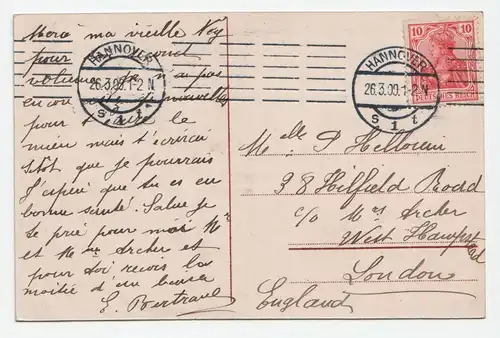 Merci ma vieille
pour
volumes je n'ai pas
encore de nouvelles
pour
mien mais t'écrirai
sitôt que je pourrais
J'espère que tu es en
bonne santé. Salue je
te prie pour moi Mr
et Mme Archer et
pour toi reçois la
moitié d'un baiser
E. Bertrand
HANNOVER
26.3.09.1-2 N
S 1 t
HANNOVER
26.3.09.1-2 N
S 1 t
10 10
DEUTSCHES REICH
Melle P Hellouin
38 Hilfield Roadd
c/o Mrs Archer
West Hampstead
London
England